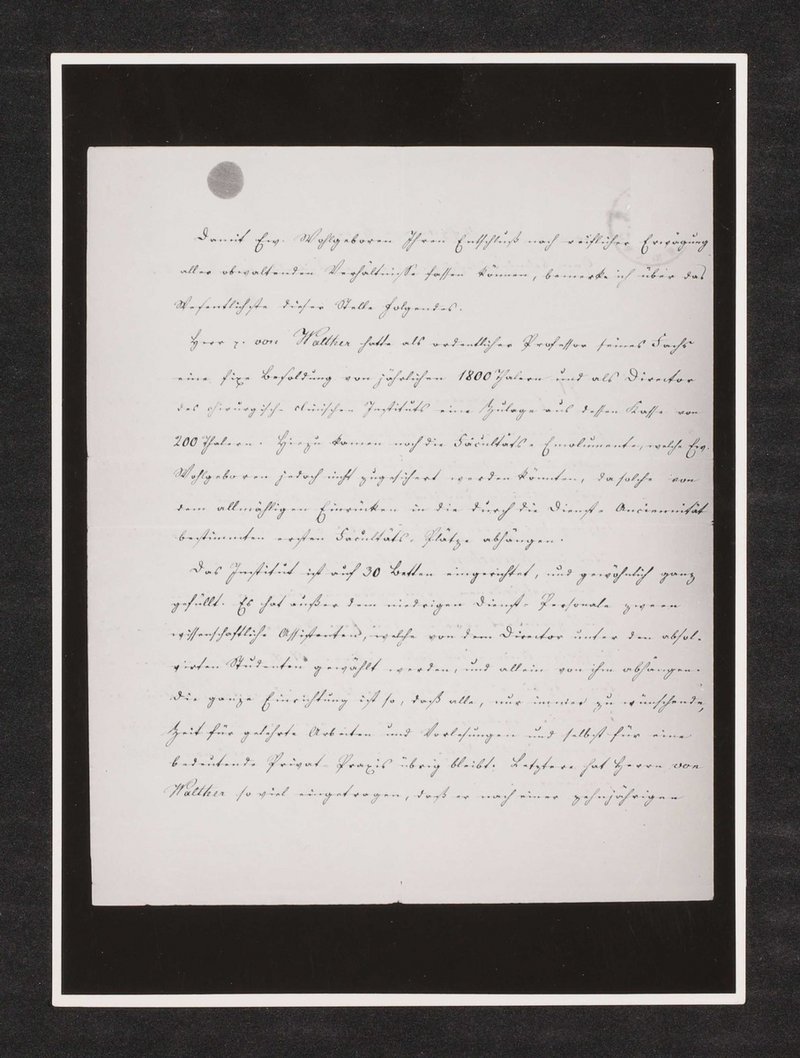 Damit Ew. Wohlgeboren Ihren Entschluß nach reiflicher Erwägung
aller obwaltenden Verhältnisse fassen können, bemerke ich über das
Wesentlichste dieser Stelle folgendes.
Herr p. von Walther hatte als ordentlicher Professor seines Fachs
eine fixe Besoldung von jährlichen 1800 Thalern und als Director
des chirurgisch-clinischen Instituts eine Zulage aus dessen Kasse von
200 Thalern. Hierzu kamen noch die Facultäts-Emolumente, welche Ew.
Wohlgeboren jedoch nicht zugesichert werden könnten, da solche von
dem allmähligen Einrücken in die durch die Dienst-Anciennität
bestimmten ersten Facultäts-Plätze abhängen.
Das Institut ist auf 30 Betten eingerichtet, und gewöhnlich ganz
gefüllt. Es hat außer dem niedrigen Dienst-Personale zween
wissenschaftliche Assistenten, welche von dem Director unter den absol-
virten Studenten gewählt werden, und allein von ihm abhängen.
Die ganze Einrichtung ist so, daß alle, nur immer zu wünschende,
Zeit für gelehrte Arbeiten und Vorlesungen und selbst für eine
bedeutende Privat-Praxis übrig bleibt. Letztere hat Herrn von
Walther so viel eingetragen, daß er nach einer zehnjährigen